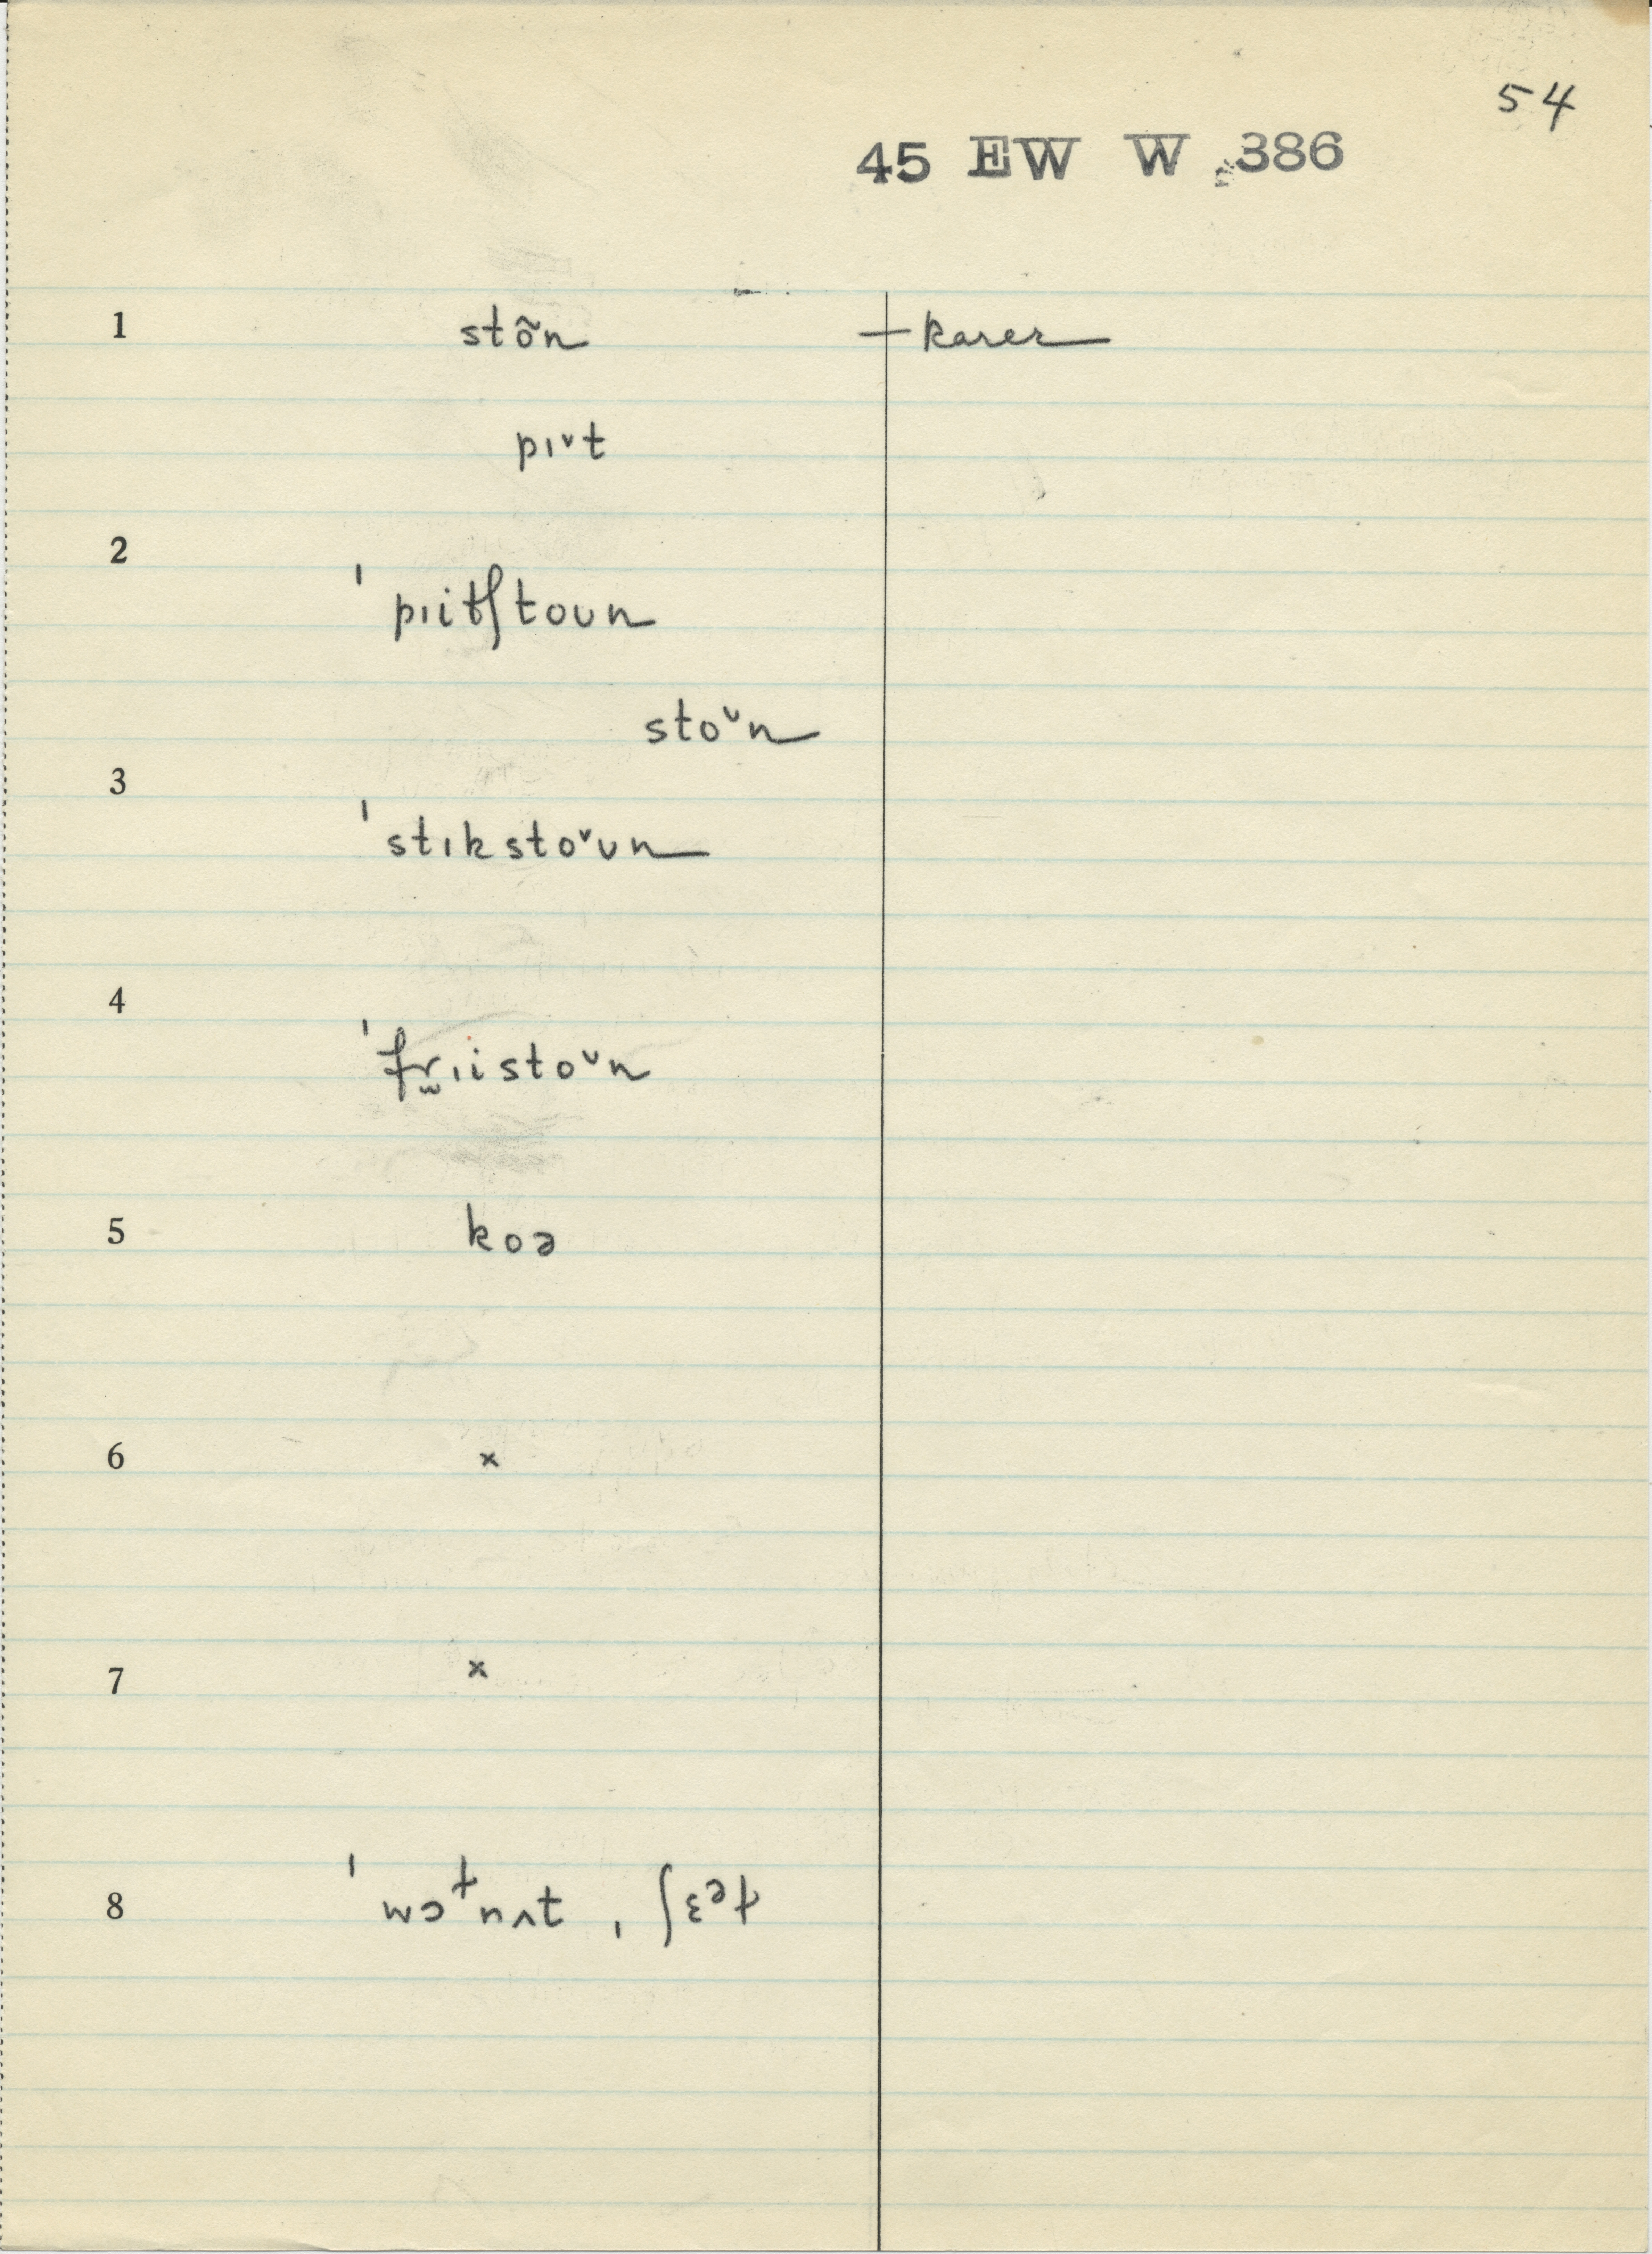 54
45 EW W 386
1 stõn — karer
pɪᵛt
2 ˈpɪitʃtoᴜn
stoᵛn
3 ˈstɪkstoᵛᴜn
4 ˈfr̫ɪistoᵛn
5 koə
6 x
7 x
8 ˈwɔɫnʌt , ʃɛəɫ